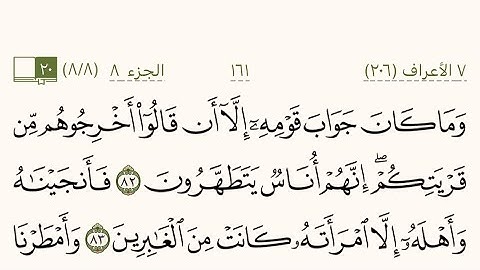 ٧ الأعراف (٢٠٦) ١٦١ الجزء ٨ (٨/٨) ٢٠
وَمَا كَانَ جَوَابَ قَوْمِهِۦٓ إِلَّآ أَن قَالُوٓا۟ أَخْرِجُوهُم مِّن
قَرْيَتِكُمْ ۖ إِنَّهُمْ أُنَاسٌ يَتَطَهَّرُونَ ٨٢ فَأَنجَيْنَـٰهُ
وَأَهْلَهُۥٓ إِلَّا ٱمْرَأَتَهُۥ كَانَتْ مِنَ ٱلْغَـٰبِرِينَ ٨٣ وَأَمْطَرْنَا